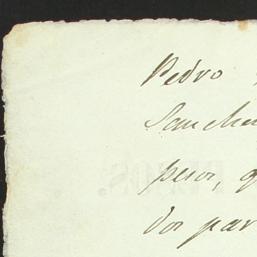 Pedro
Sanche
pesos, q
dos par